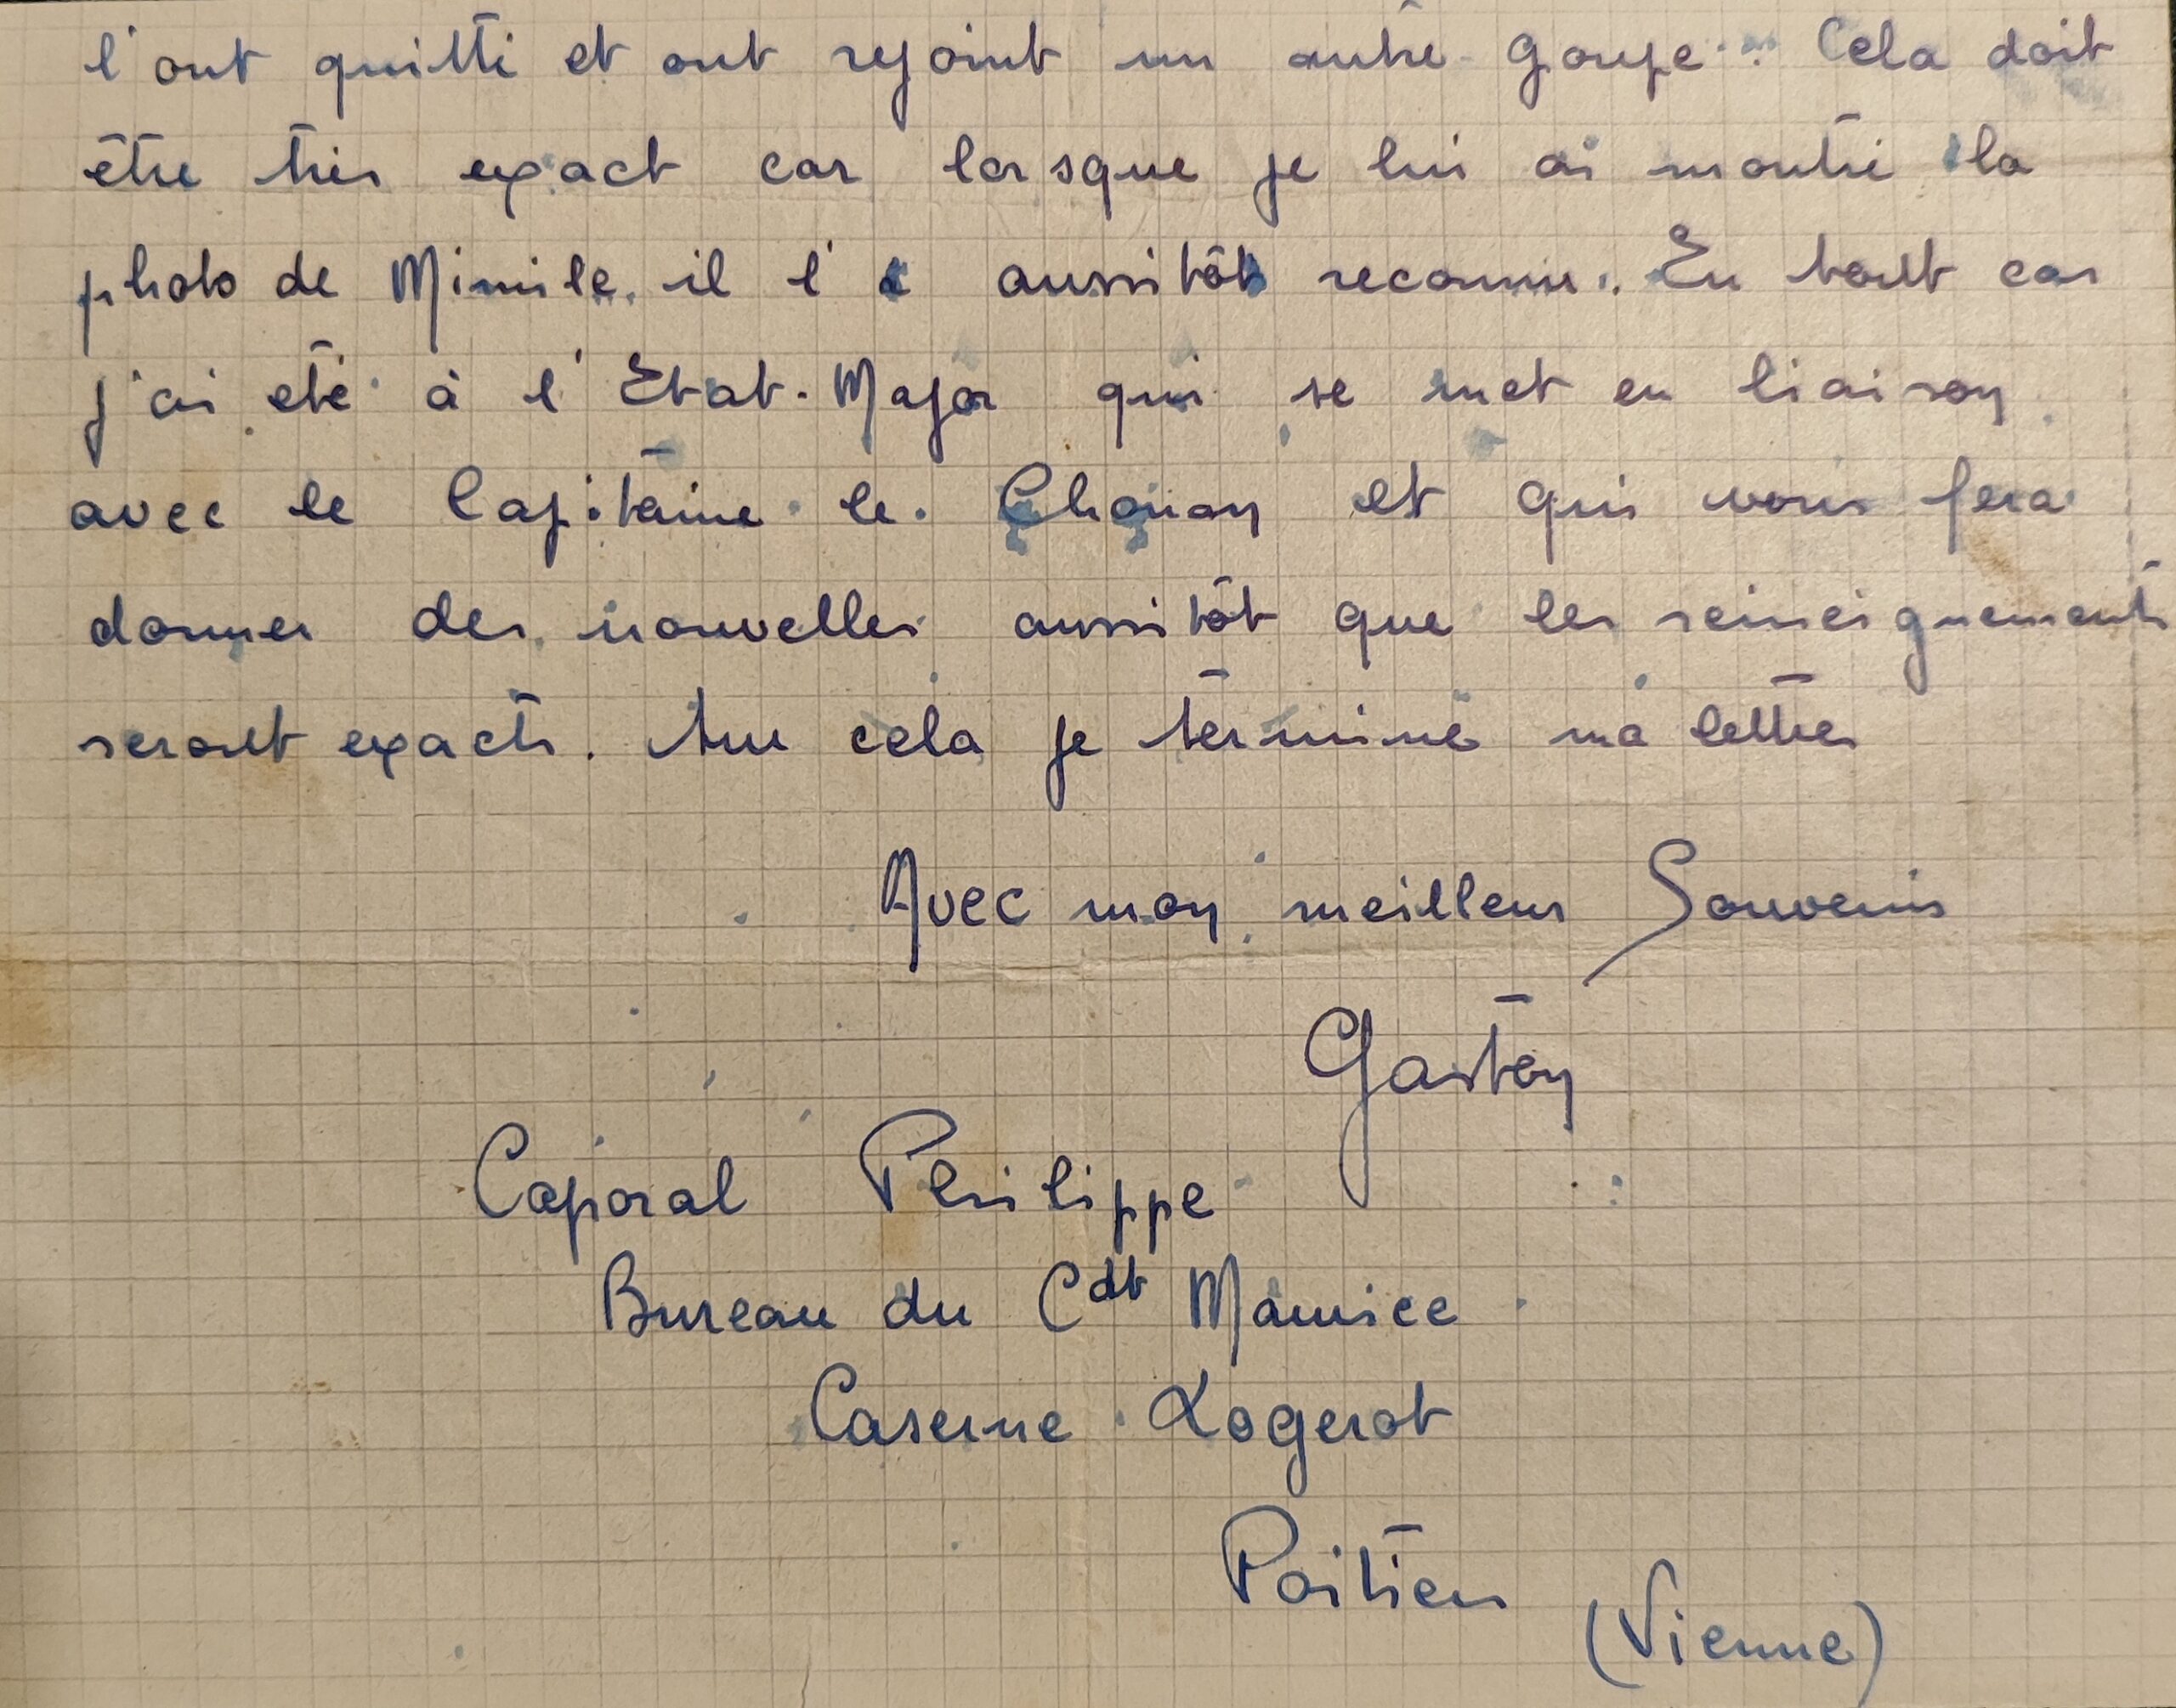 l'ont quitté et ont rejoint un autre goupe. Cela doit
être très exact car lorsque je lui ai montré la
photo de Mimile. il l'a aussitôt reconnu. En tout cas
j'ai été à l'Etat-Major qui se met en liaison
avec le Capitaine le Chouan et qui vous fera
donner des nouvelles aussitôt que les renseignements
seront exacts. Sur cela je termine ma lettre
Avec mon meilleur Souvenir
Gaston
Caporal Philippe
Bureau du Cdt Maurice
Caserne Logerot
Poitiers
(Vienne)